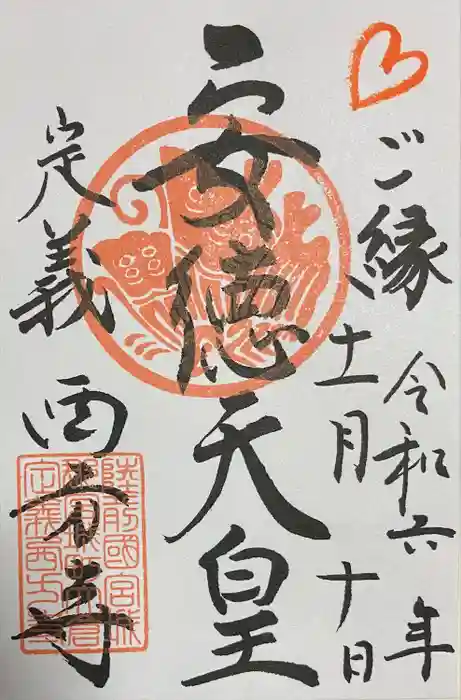 ご縁
令和六年
十一月十日
安徳天皇
定義 西方寺
陸前國宮城
定義西方寺